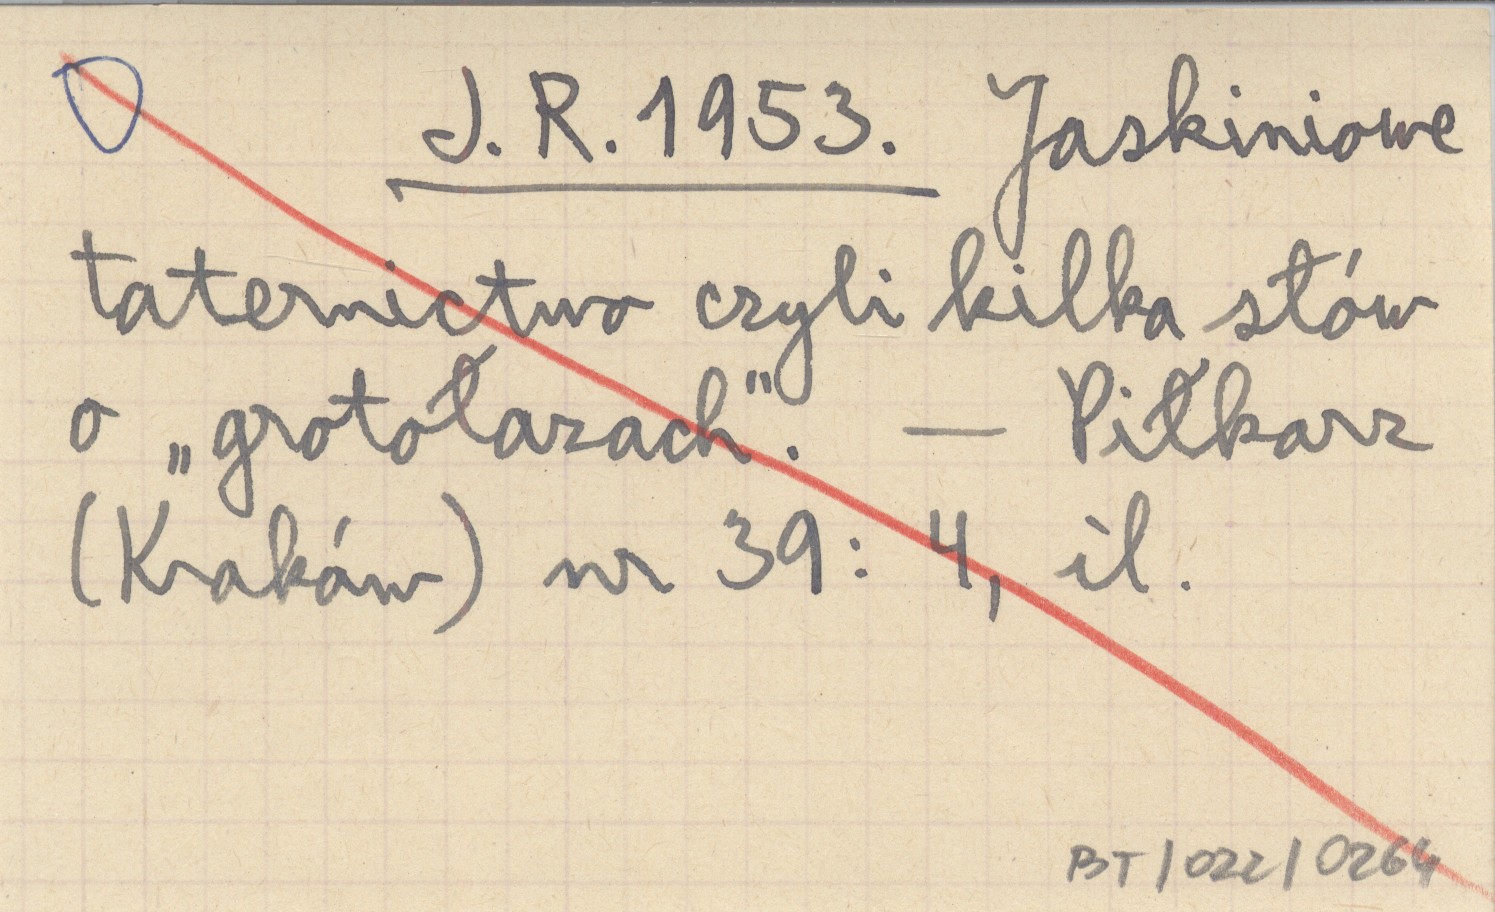 J. R. 1953. Jaskiniowe
taternictwo czyli kilka słów
o „grotołazach". — Piłkarz
(Kraków) nr 39: 4, il.
BT/022/0264